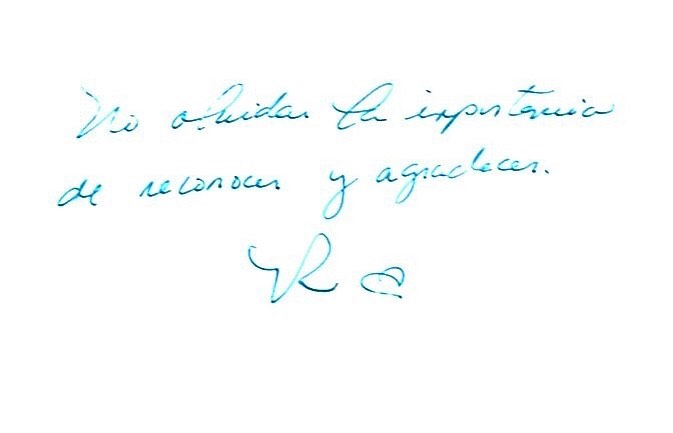 No olvidar la importancia
de reconocer y agradecer.
R